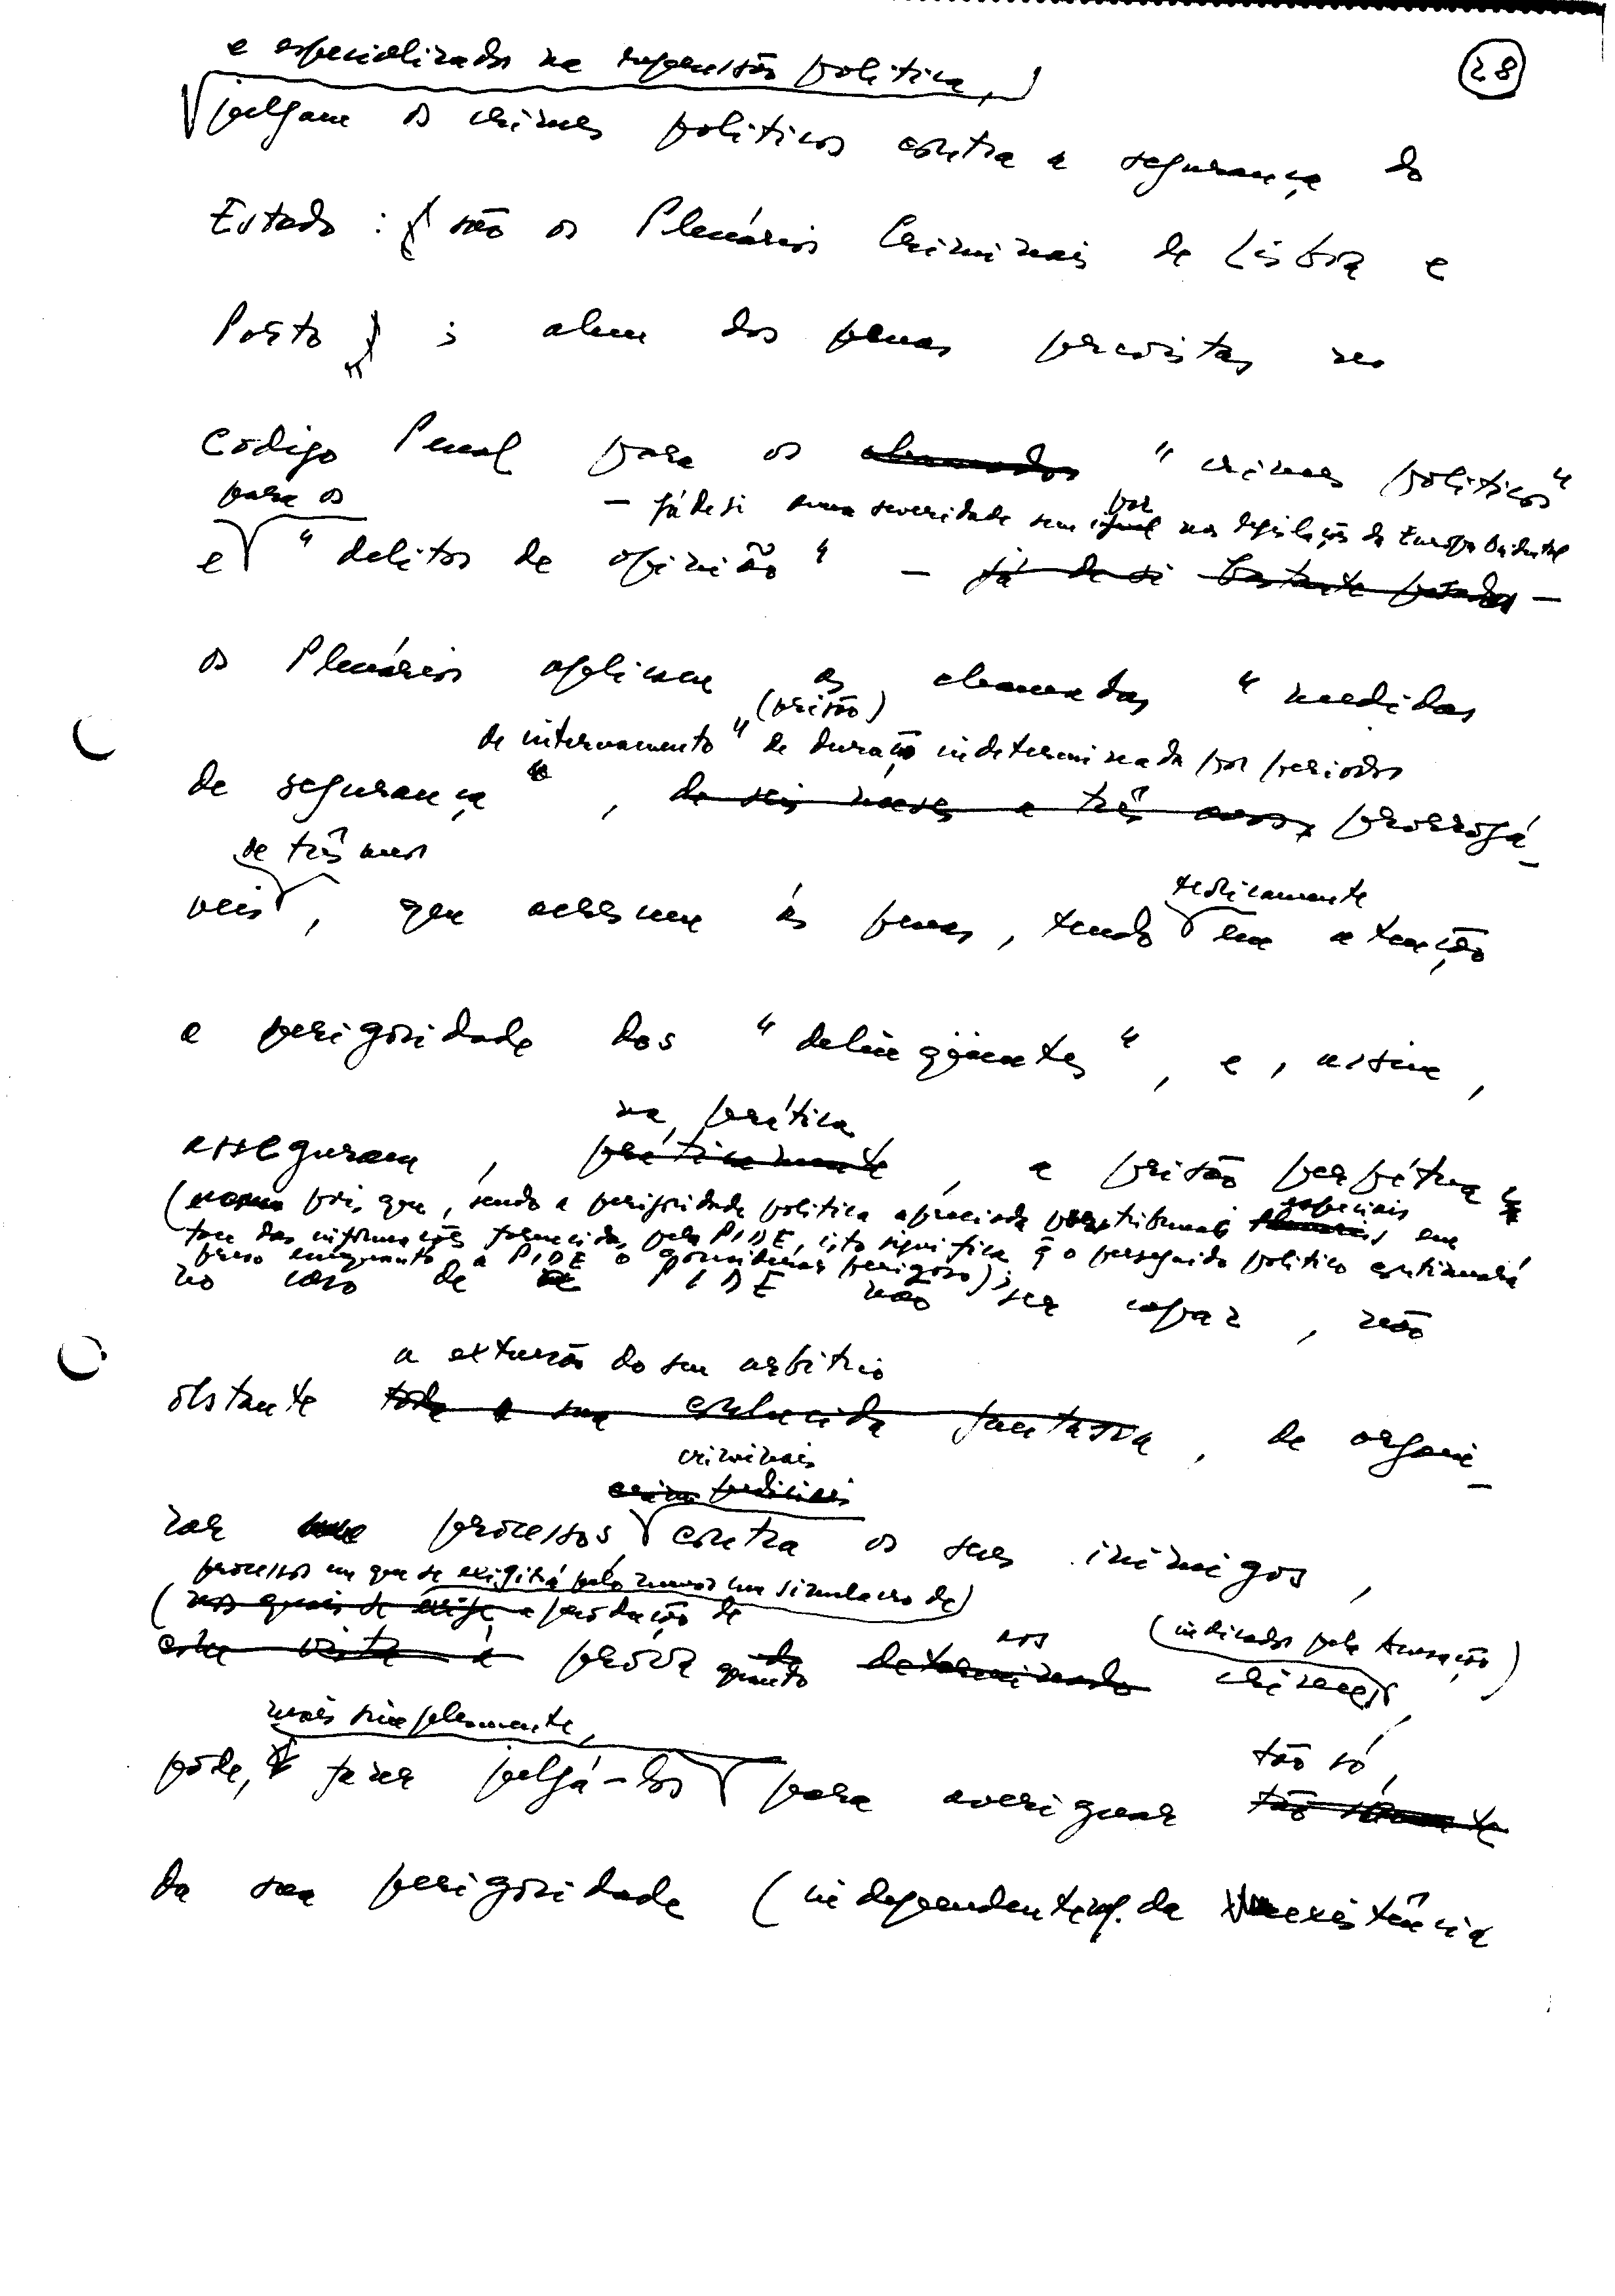 28
e especializados na repressão política,
julgam os crimes políticos contra a segurança do
Estado : são os Plenários Criminais de Lisboa e
Porto ; alem das penas previstas no
Código Penal para os chamados "crimes políticos"
para os
– já de si duma severidade sem par nas legislações da Europa Ocidental
e "delitos de opinião" – já de si bastante pesadas –
os Plenários aplicam as chamadas "medidas
(prisão)
de internamento" de duração indeterminada por periodos
de segurança", de seis meses a três anos, prorrogá-
de três anos
veis, que acrescem às penas, tendo
teòricamente
em atenção
a perigosidade dos "delinqüentes", e, assim,
na prática
asseguram, práticamente, a prisão perpétua
(pois que, sendo a perigosidade política apreciada por tribunais especiais em
face das informações fornecidas pela PIDE, isto significa q o perseguido político continuará
preso enquanto a PIDE o considerar perigoso);
no caso de a PIDE não ser capaz, não
a extensão do seu arbítrio
obstante toda a sua conhecida fantasia, de organi-
criminais
judiciais
zar processos contra os seus inimigos,
processos em que se exigirá pelo menos um simulacro de
(nos quais se exige a produção de
prova quanto aos crimes
(indicados pela Acusação)
mais simplesmente,
póde, fazer julgá-los para averiguar
tão só,
tão sómente
da sua perigosidade (independentem. da existência